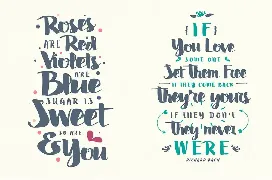 Roses
ARE Red
Violets
ARE
Blue
SUGAR IS
Sweet
SO ARE
& You
{IF}
You Love
SOME ONE
Set Them Free
IF THEY COME BACK
They're yours
IF THEY DON'T
They never
WERE
RICHARD BACH